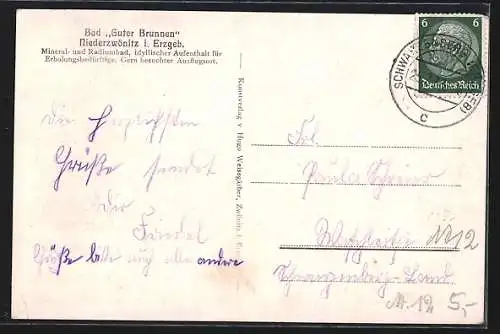 Bad „Guter Brunnen“
Niederzwönitz i. Erzgeb.
Mineral- und Radiumbad, idyllischer Aufenthalt für
Erholungsbedürftige. Gern besuchter Ausflugsort.
6 6
Deutsches Reich
SCHWARZ
c
Kunstverlag v. Hugo Weissgärber, Zwönitz i.
Die herzlichsten
Grüße sendet
Dir
Friedel
Grüße bitte auch alle andere
Frl.
Paula
Nr 12
Schwarzenberg-Land.
Nr. 12 5,-